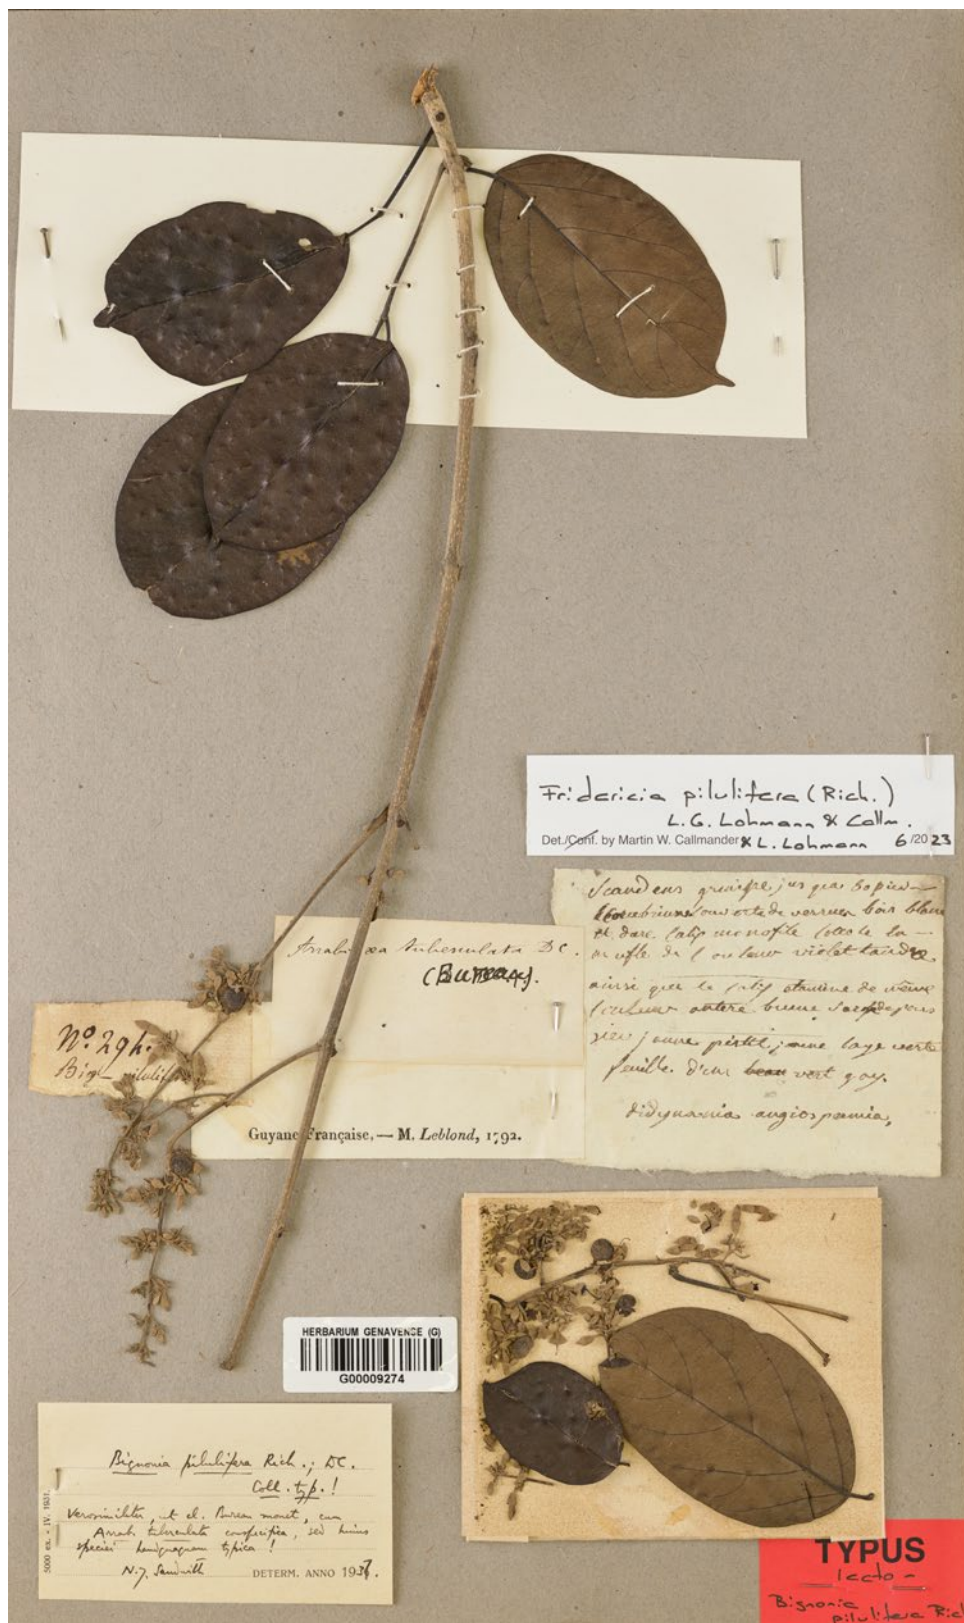 Fridericia pilulifera (Rich.)
L.G. Lohmann & Callm.
Det./Conf. by Martin W. Callmander & L. Lohmann 6/2023
Scandens grimpe jus qua 50 pied
ouverte de verrues bois blanc
et dure Calip monofile
de Couleur violet tandre
ainsi que le calip etamine de même
Couleur antere brune
jaune pistil jaune tage verte
feuille d'un beau vert gay.
didynamia angiospermia,
Arrabidaea tuberculata DC.
(Bureau).
Guyane Française. — M. Leblond, 1792.
No. 294.
Big- pilulifera
HERBARIUM GENAVENSE (G)
G00009274
Bignonia pilulifera Rich.; DC.
Coll. typ.!
Verosimiliter, ut cl. Bureau monet, cum
Arrab. tuberculata conspecifica, sed huius
speciei haudquaquam typica!
N.Y. Sandwith DETERM. ANNO 1937.
5000 ex. - IV. 1931.
TYPUS
lecto-
Bignonia
pilulifera Rich